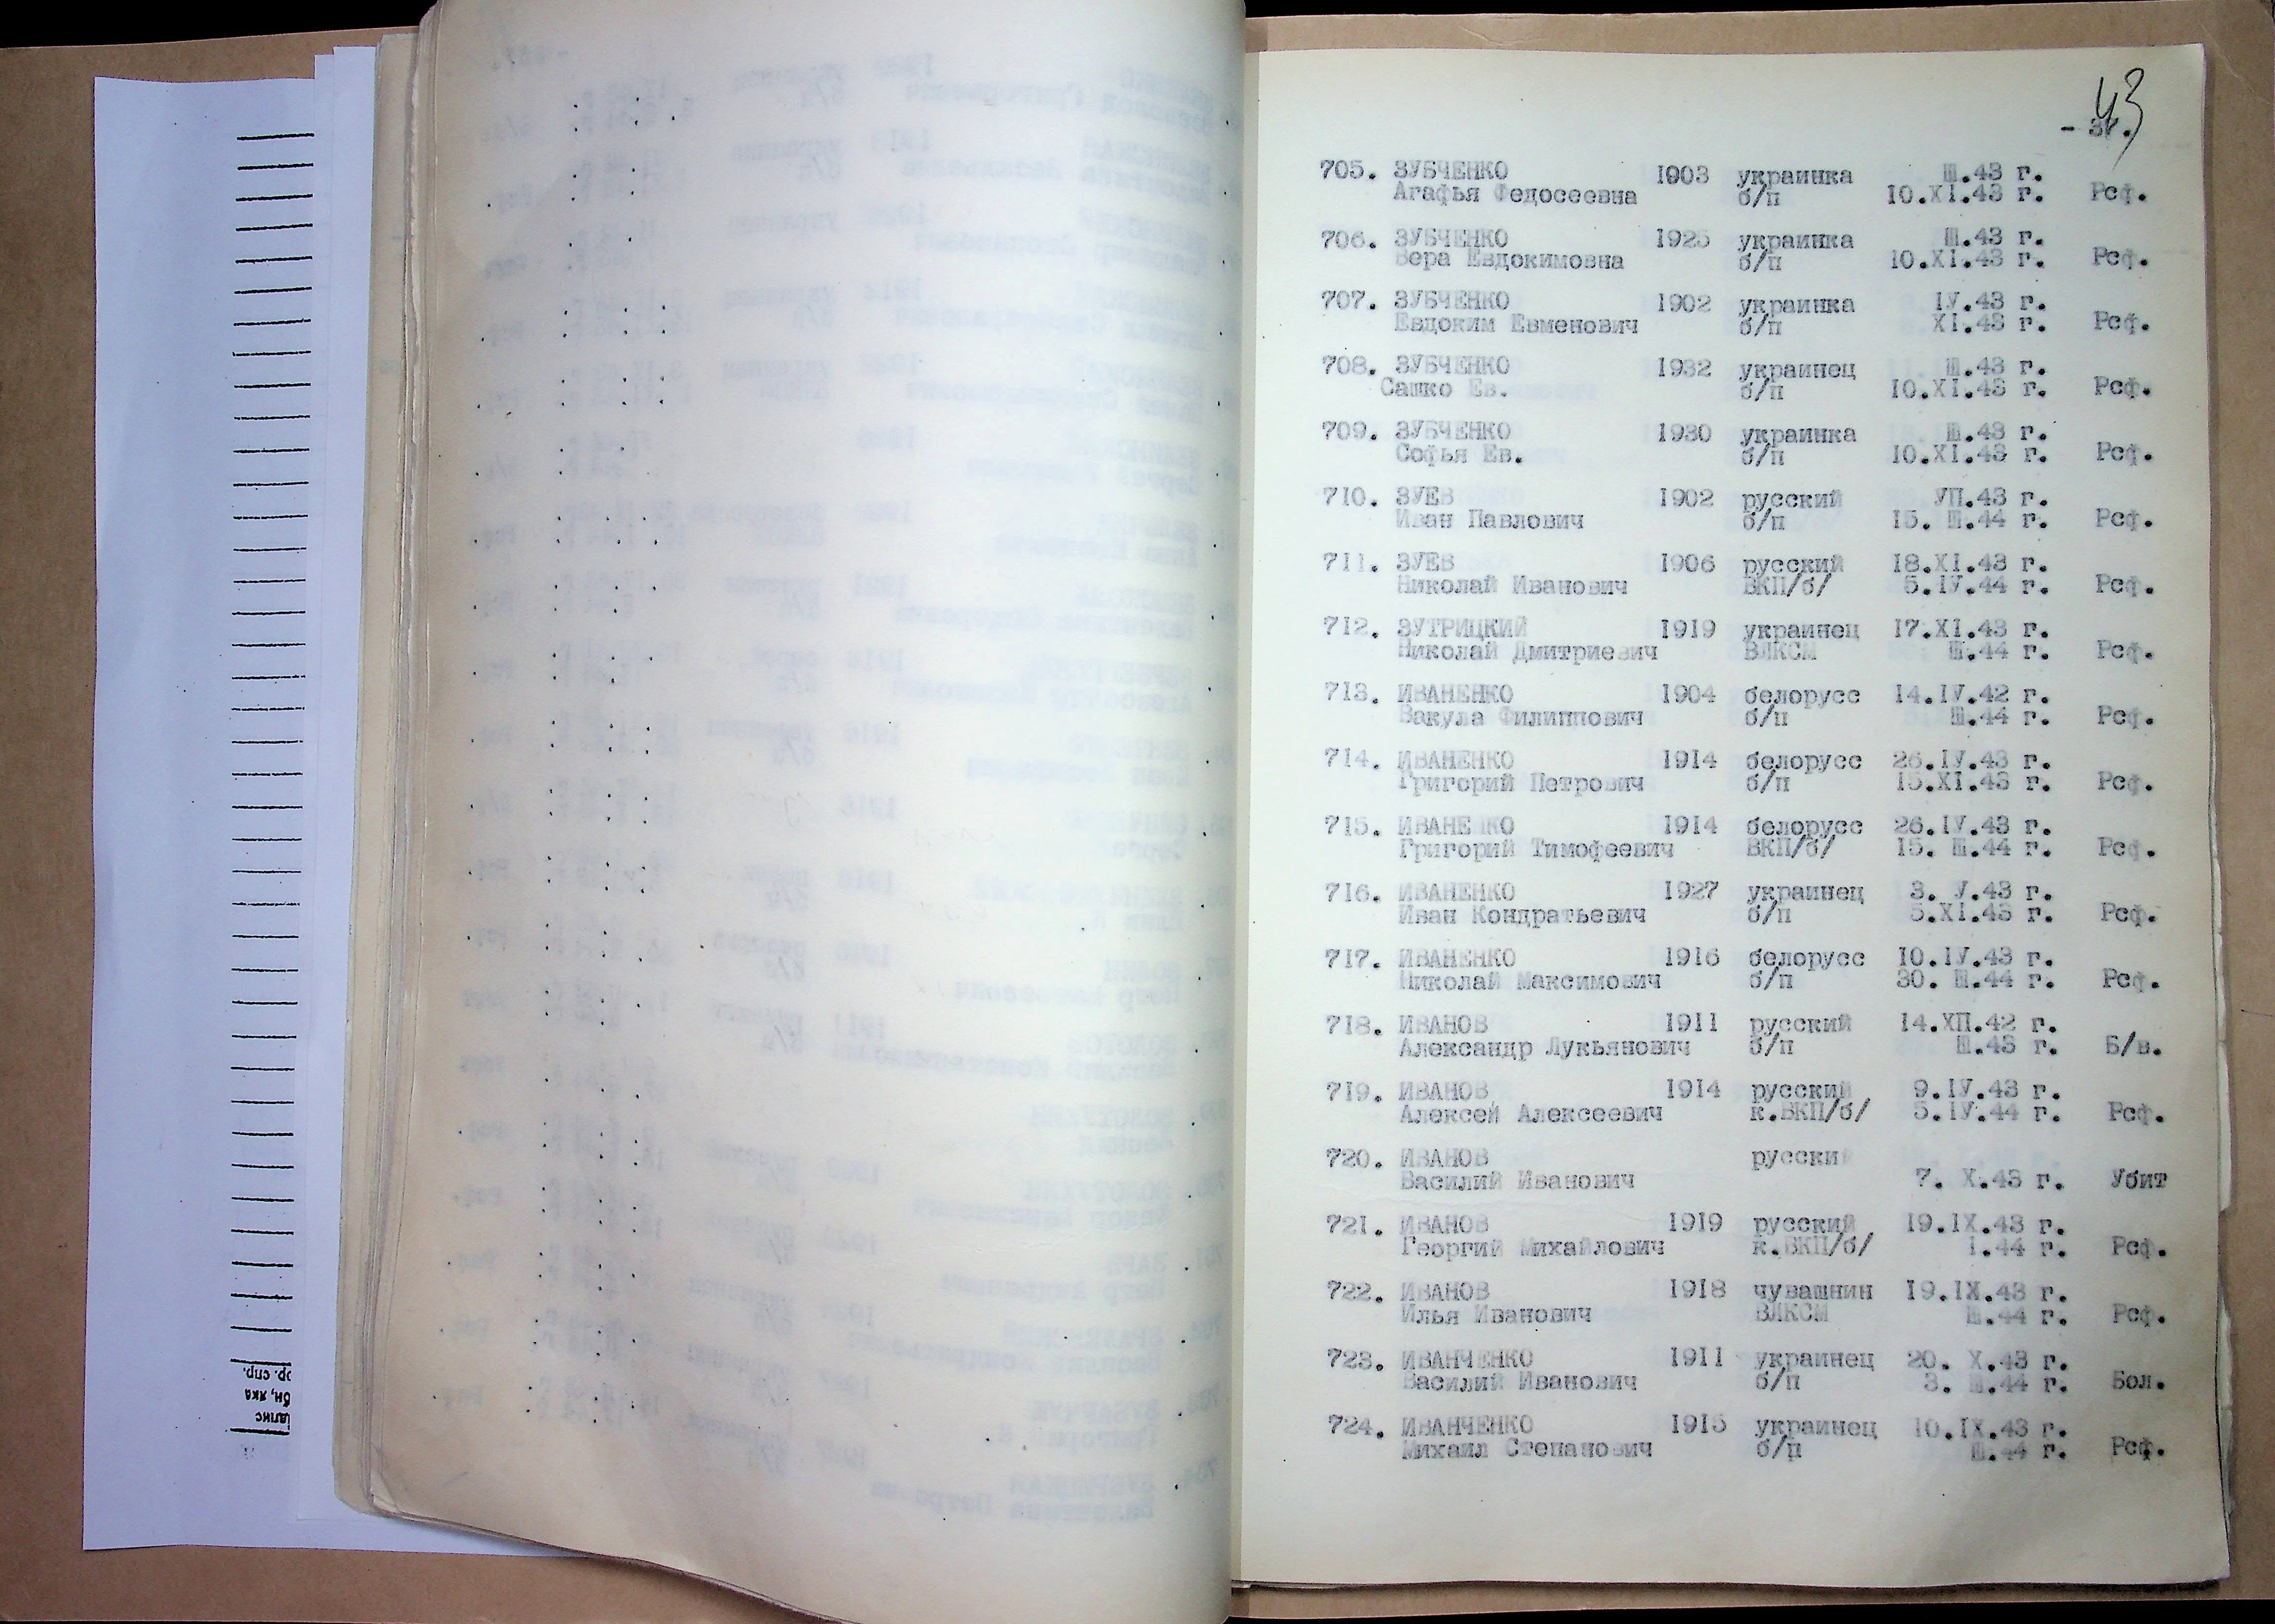 43
705. ЗУБЧЕНКО 1903 украинка Ш.43 г.
Агафья Федосеевна б/п 10.XI.43 г. Рсф.
706. ЗУБЧЕНКО 1925 украинка Ш.43 г.
Вера Евдокимовна б/п 10.XI.43 г. Рсф.
707. ЗУБЧЕНКО 1902 украинка IУ.43 г.
Евдоким Евменович б/п XI.43 г. Рсф.
708. ЗУБЧЕНКО 1932 украинец Ш.43 г.
Сашко Ев. б/п 10.XI.43 г. Рсф.
709. ЗУБЧЕНКО 1930 украинка Ш.43 г.
Софья Ев. б/п 10.XI.43 г. Рсф.
710. ЗУЕВ 1902 русский УП.43 г.
Иван Павлович б/п 15. Ш.44 г. Рсф.
711. ЗУЕВ 1906 русский 18.XI.43 г.
Николай Иванович ВКП/б/ 5.IУ.44 г. Рсф.
712. ЗУТРИЦКИЙ 1919 украинец 17.XI.43 г.
Николай Дмитриевич ВЛКСМ Ш.44 г. Рсф.
713. ИВАНЕНКО 1904 белорусс 14.IУ.42 г.
Вакула Филиппович б/п Ш.44 г. Рсф.
714. ИВАНЕНКО 1914 белорусс 26.IУ.43 г.
Григорий Петрович б/п 15.XI.43 г. Рсф.
715. ИВАНЕНКО 1914 белорусс 26.IУ.43 г.
Григорий Тимофеевич ВКП/б/ 15. Ш.44 г. Рсф.
716. ИВАНЕНКО 1927 украинец 3. У.43 г.
Иван Кондратьевич б/п 5.XI.43 г. Рсф.
717. ИВАНЕНКО 1916 белорусс 10.IУ.43 г.
Николай Максимович б/п 30. Ш.44 г. Рсф.
718. ИВАНОВ 1911 русский 14.ХП.42 г.
Александр Лукьянович б/п Ш.43 г. Б/в.
719. ИВАНОВ 1914 русский 9.IУ.43 г.
Алексей Алексеевич к.ВКП/б/ 5.IУ.44 г. Рсф.
720. ИВАНОВ русский
Василий Иванович 7. X.43 г. Убит
721. ИВАНОВ 1919 русский 19.IX.43 г.
Георгий Михайлович к.ВКП/б/ 1.44 г. Рсф.
722. ИВАНОВ 1918 чувашнин 19.IX.43 г.
Илья Иванович ВЛКСМ Ш.44 г. Рсф.
723. ИВАНЧЕНКО 1911 украинец 20. X.43 г.
Василий Иванович б/п 3. Ш.44 г. Бол.
724. ИВАНЧЕНКО 1915 украинец 10.IX.43 г.
Михаил Степанович б/п Ш.44 г. Рсф.